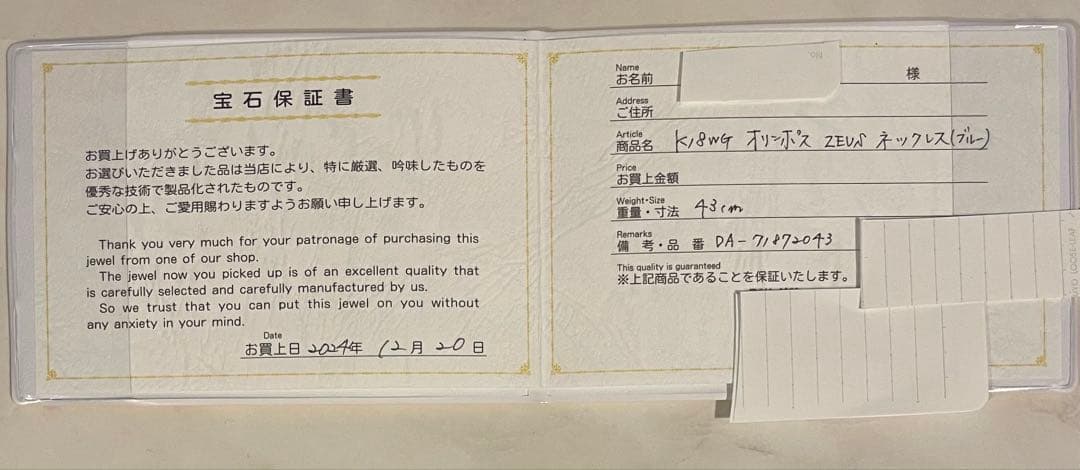 宝石保証書
お買上げありがとうございます。
お選びいただきました品は当店により、特に厳選、吟味したものを
優秀な技術で製品化されたものです。
ご安心の上、ご愛用賜わりますようお願い申し上げます。
Thank you very much for your patronage of purchasing this
jewel from one of our shop.
The jewel now you picked up is of an excellent quality that
is carefully selected and carefully manufactured by us.
So we trust that you can put this jewel on you without
any anxiety in your mind.
Date
お買上日 2024年 12月 20日
No.
Name
お名前 様
Address
ご住所
Article
商品名 K18WG オリンポス ZEUS ネックレス(ブルー)
Price
お買上金額
Weight・Size
重量・寸法 43cm
Remarks
備考・品番 DA-71872043
This quality is guaranteed
※上記商品であることを保証いたします。
LOOSE-LEAF